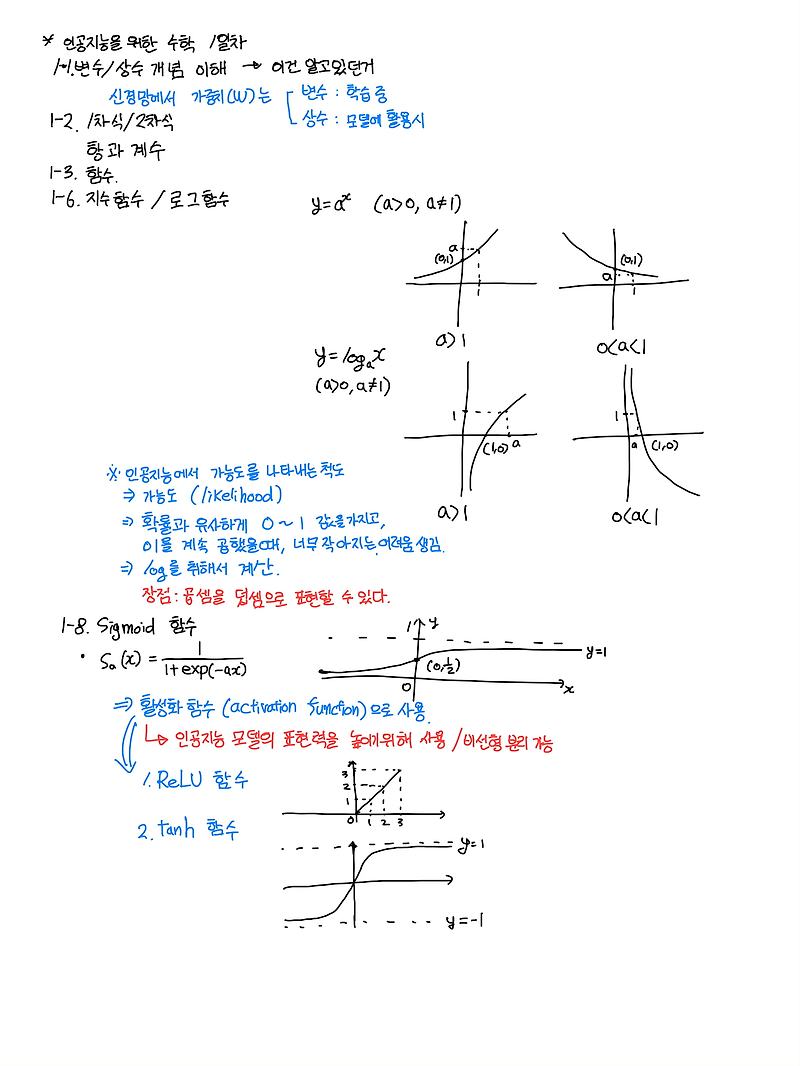 * 인공지능을 위한 수학 1일차
1-1. 변수/상수 개념 이해 → 이건 알고있던거
신경망에서 가중치(W)는
변수 : 학습 중
상수 : 모델에 활용시
1-2. 1차식/2차식
항과 계수
1-3. 함수.
1-6. 지수함수 / 로그함수
y=aˣ (a>0, a≠1)
a
(0,1)
1
a>1
(0,1)
a
1
0<a<1
y=logₐx
(a>0, a≠1)
1
(1,0)
a
a>1
1
a
(1,0)
0<a<1
※ 인공지능에서 가능도를 나타내는 척도
⇒ 가능도 (likelihood)
⇒ 확률과 유사하게 0~1 값을 가지고,
이를 계속 곱했을때, 너무 작아지는 어려움 생김.
⇒ log를 취해서 계산.
장점 : 곱셈을 덧셈으로 표현할 수 있다.
1-8. Sigmoid 함수
• Sₐ(x) = 1/(1+exp(-ax))
1
y
y=1
(0,½)
0
x
⇒ 활성화 함수 (activation function)으로 사용.
↳ 인공지능 모델의 표현력을 높이기위해 사용 / 비선형 분리 가능
1. ReLU 함수
3
2
1
0 1 2 3
2. tanh 함수
y=1
y=-1